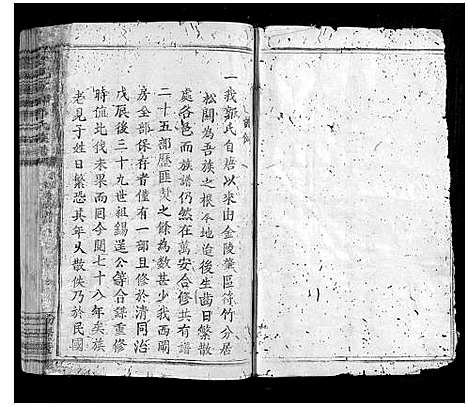 一我郭氏自唐以來由金陵龔區符竹分居
松關為吾族之根本地迨後生齒日繁散
處各邑而族譜仍然在萬安合修共有譜
二十五部歷匪焚之餘為數甚少我西鄘
房全部保存者僅有一部且修於清同治
戊辰後三十九世祖錫蓮公等合錄重修
時值北伐未果而因今閱七十八年矣族
老見子姓日繁恐其年久散佚乃於民國